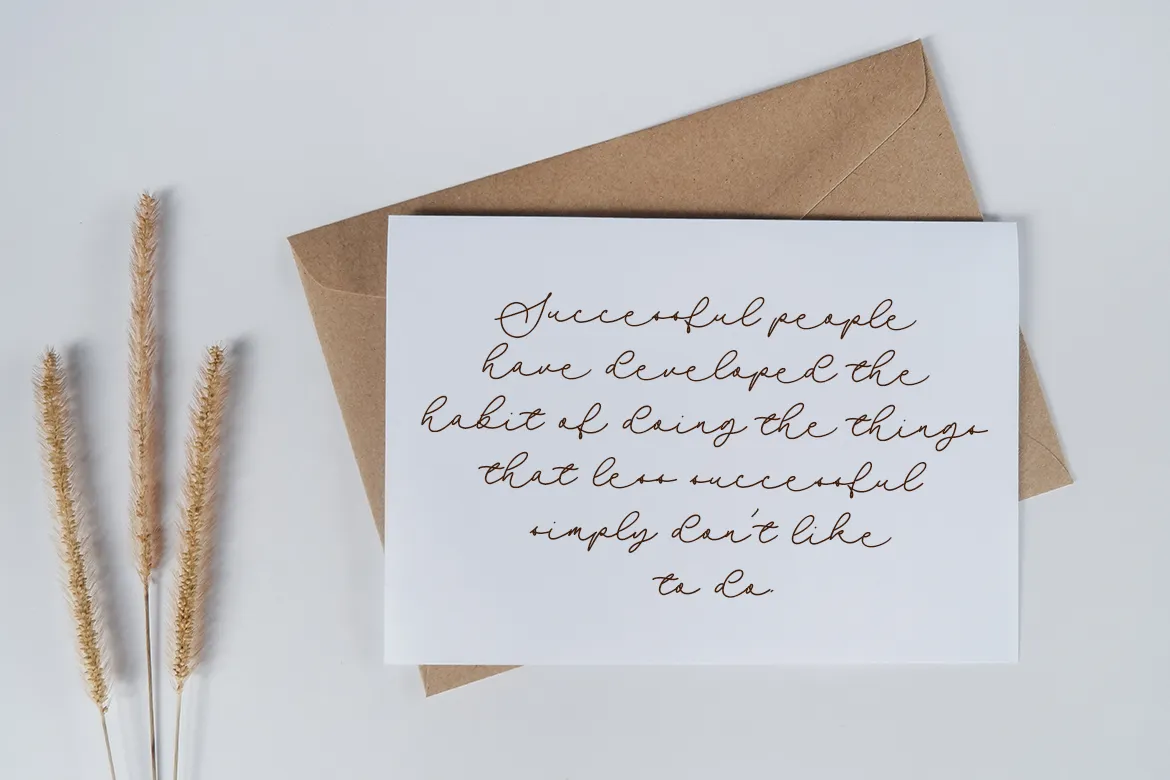 Successful people
have developed the
habit of doing the things
that less successful
simply don't like
to do.